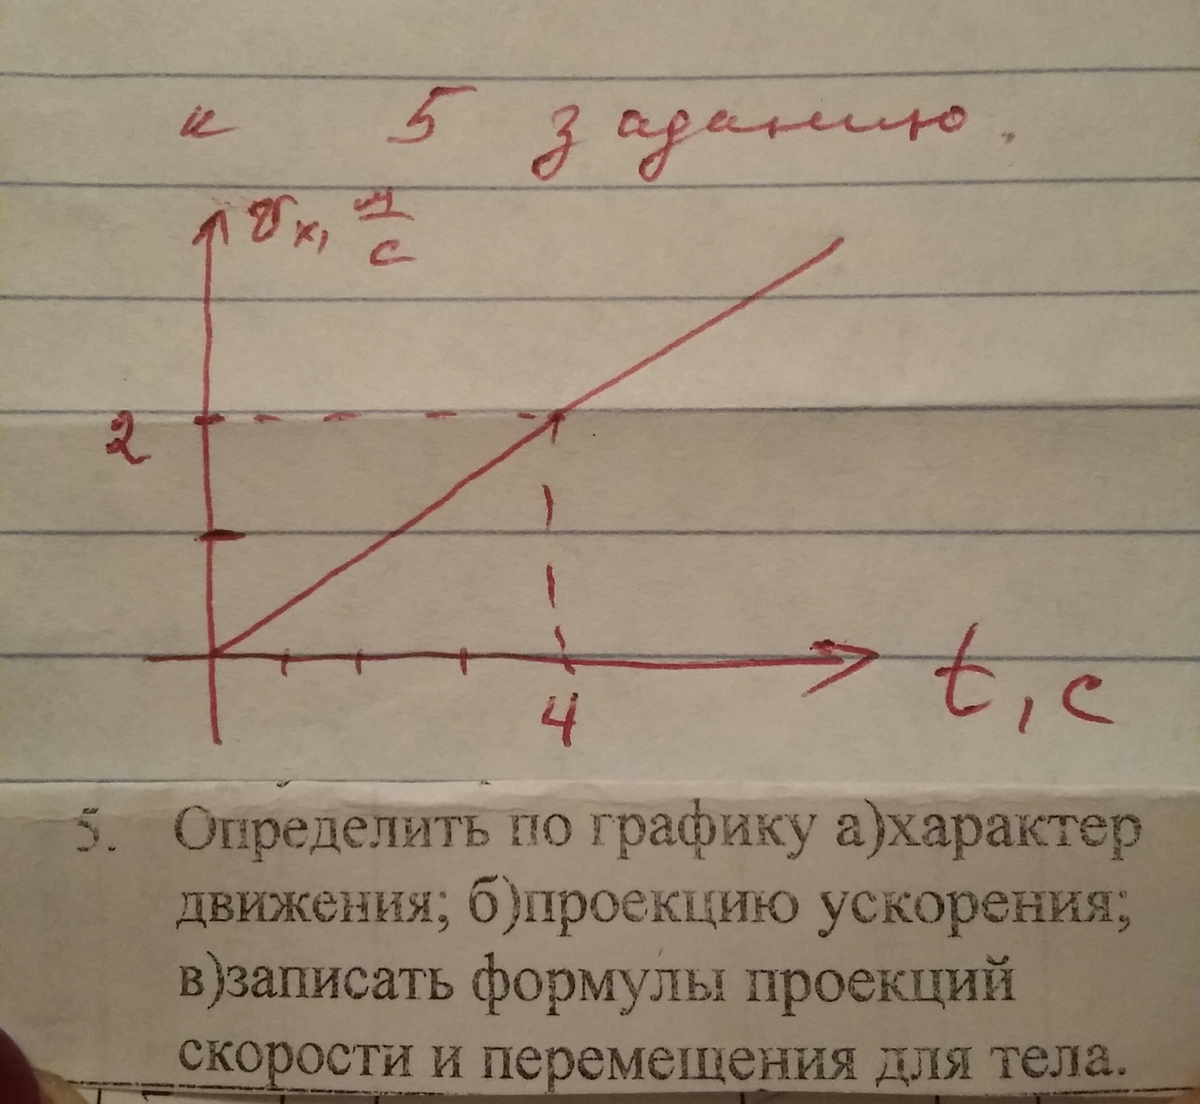 к 5 заданию.
υx, м/с
2
4
t, с
5. Определить по графику а)характер
движения; б)проекцию ускорения;
в)записать формулы проекций
скорости и перемещения для тела.